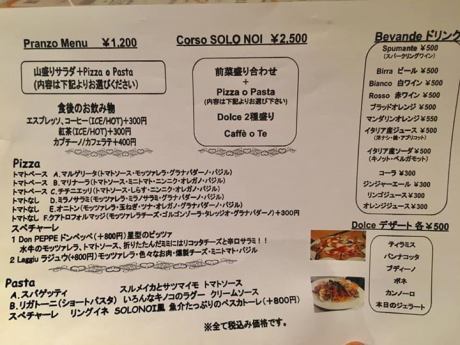 Pranzo Menu ¥1,200
山盛りサラダ+Pizza o Pasta
(内容は下記よりお選びください)
食後のお飲み物
エスプレッソ、コーヒー(ICE/HOT)+300円
紅茶(ICE/HOT)+300円
カプチーノ/カフェラテ+400円
Corso SOLO NOI ¥2,500
前菜盛り合わせ
+
Pizza o Pasta
(内容は下記よりお選びください)
Dolce 2種盛り
Caffè o Te
Bevande ドリンク
Spumante ¥500
(スパークリングワイン)
Birra ビール ¥500
Bianco 白ワイン ¥500
Rosso 赤ワイン ¥500
ブラッドオレンジ ¥500
マンダリンオレンジ ¥550
イタリア産ジュース ¥500
イタリア産ソーダ ¥500
(キノット・ベルガモット)
コーラ ¥300
ジンジャーエール ¥300
リンゴジュース ¥300
オレンジジュース ¥300
Pizza
トマトベース A.マルゲリータ(トマトソース・モッツァレラ・グラナパダーノ・バジル)
トマトベース B.マリナーラ(トマトソース・ミニトマト・ニンニク・オレガノ・バジル)
トマトベース C.チチニエッリ(トマトソース・しらす・ニンニク・オレガノ・バジル)
トマトなし D.ミラノサラミ(モッツァレラ・ミラノサラミ・グラナパダーノ・バジル)
トマトなし E.オニトン(モッツァレラ・玉ねぎ・ツナ・オレガノ・グラナパダーノ・バジル)
トマトなし F.クアトロフォルマッジ(モッツァレラチーズ・ゴルゴンゾーラ・タレッジオ・グラナパダーノ)+300円
スペチャーレ
1 Don PEPPE ドンペッペ(+800円)星型のピッツァ
水牛のモッツァレラ、トマトソース、折りたたんだミミにはリコッタチーズと辛口サラミ!!
2 Laggiu ラジュウ(+800円)モッツァレラ・色々なお肉・燻製チーズ・ミニトマト・バジル
Pasta
A.スパゲッティ スルメイカとサツマイモ トマトソース
B.リガトーニ(ショートパスタ) いろんなキノコのラグー クリームソース
スペチャーレ リングイネ SOLONOI風 魚介たっぷりのペスカトーレ(+800円)
※全て税込み価格です。
Dolce デザート 各¥500
ティラミス
パンナコッタ
ブディーノ
ボネ
カンノーロ
本日のジェラート